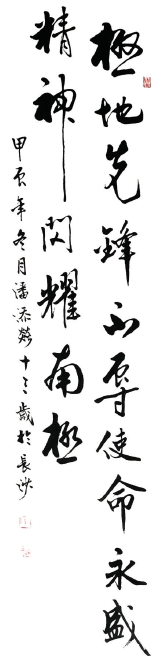 極地先鋒不辱使命永盛
精神閃耀南極
甲辰年冬月潘添燚十三歲於長沙